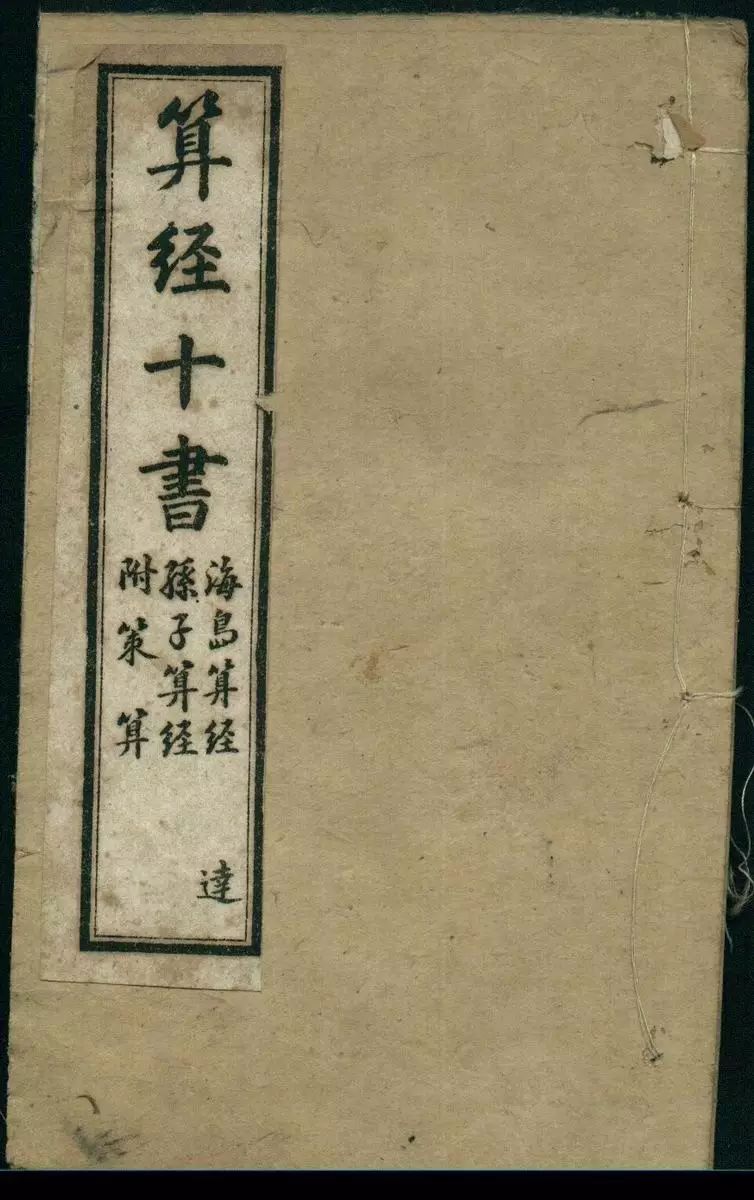 算经十書
海島算经
孫子算经
附策算
達